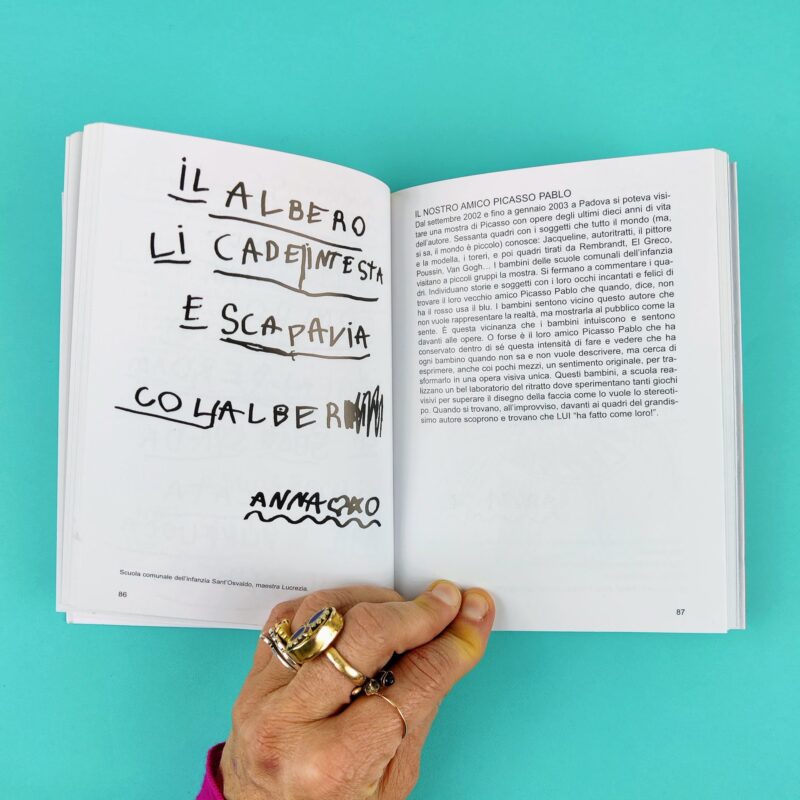 IL ALBERO
LI CADE INTESTA
E SCAPAVIA
COLALBERO
ANNA
Scuola comunale dell'infanzia Sant'Osvaldo, maestra Lucrezia.
86
IL NOSTRO AMICO PICASSO PABLO
Dal settembre 2002 e fino a gennaio 2003 a Padova si poteva visi-
tare una mostra di Picasso con opere degli ultimi dieci anni di vita
dell'autore. Sessanta quadri con i soggetti che tutto il mondo (ma,
si sa, il mondo è piccolo) conosce: Jacqueline, autoritratti, il pittore
e la modella, i toreri, e poi quadri tirati da Rembrandt, El Greco,
Poussin. Van Gogh... I bambini delle scuole comunali dell'infanzia
visitano a piccoli gruppi la mostra. Si fermano a commentare i qua-
dri. Individuano storie e soggetti con i loro occhi incantati e felici di
trovare il loro vecchio amico Picasso Pablo che quando, dice, non
ha il rosso usa il blu. I bambini sentono vicino questo autore che
non vuole rappresentare la realtà, ma mostrarla al pubblico come la
sente. È questa vicinanza che i bambini intuiscono e sentono
davanti alle opere. O forse è il loro amico Picasso Pablo che ha
conservato dentro di sè questa intensità di fare e vedere che ha
ogni bambino quando non sa e non vuole descrivere, ma cerca di
esprimere, anche coi pochi mezzi, un sentimento originale, per tra-
sformarlo in una opera visiva unica. Questi bambini, a scuola rea-
lizzano un bel laboratorio del ritratto dove sperimentano tanti giochi
visivi per superare il disegno della faccia come lo vuole lo stereoti-
po. Quando si trovano, all'improvviso, davanti ai quadri del grandis-
simo autore scoprono e trovano che LUI "ha fatto come loro!".
87